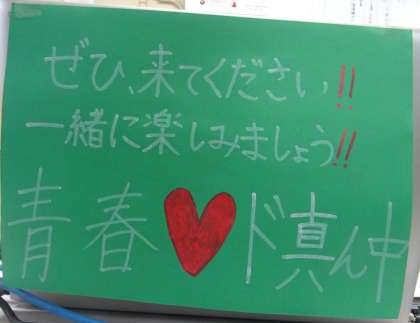 ぜひ、来てください!!
一緒に楽しみましょう!!
青春♥ド真ん中